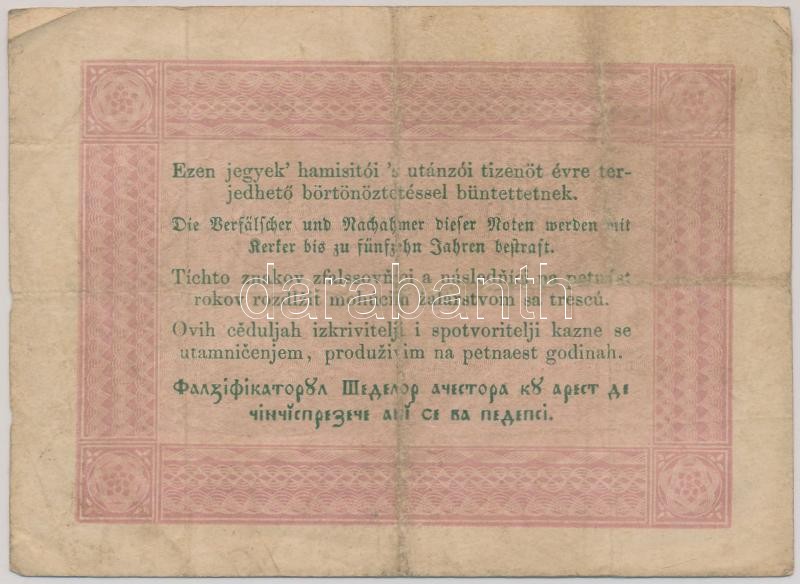 Ezen jegyek’ hamisitói ’s utánzói tizenöt évre ter-
jedhető börtönöztetéssel büntettetnek.
Die Verfälscher und Nachahmer dieser Noten werden mit
Kerker bis zu fünfzehn Jahren bestraft.
Tíchto znakov zfalssovňíci a následňíci na petnást
rokov rozďížiť mohúcím žalárstvom sa trescú.
darabanth
Ovih cěduljah izkrivitelji i spotvoritelji kazne se
utamničenjem, produživim na petnaest godinah.
Фалзіфікаторꙋл Шеделор ачестора кꙋ арест де
чінчіспрезече анї се ва педепсі.